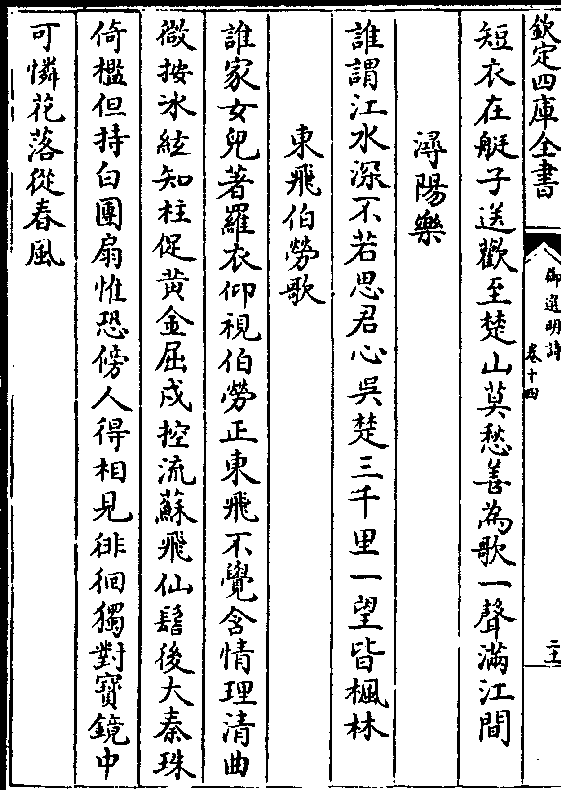 欽定四庫全書
御選明詩
卷十四
短衣在艇子送歡至楚山莫愁善為歌一聲滿江間
潯陽樂
誰謂江水深不若思君心吳楚三千里一望皆楓林
東飛伯勞歌
誰家女兒著羅衣仰視伯勞正東飛不覺含情理清曲
微按冰絃知柱促黃金屈戍控流蘇飛仙髻後大秦珠
倚檻但持白團扇惟恐傍人得相見徘徊獨對寶鏡中
可憐花落從春風